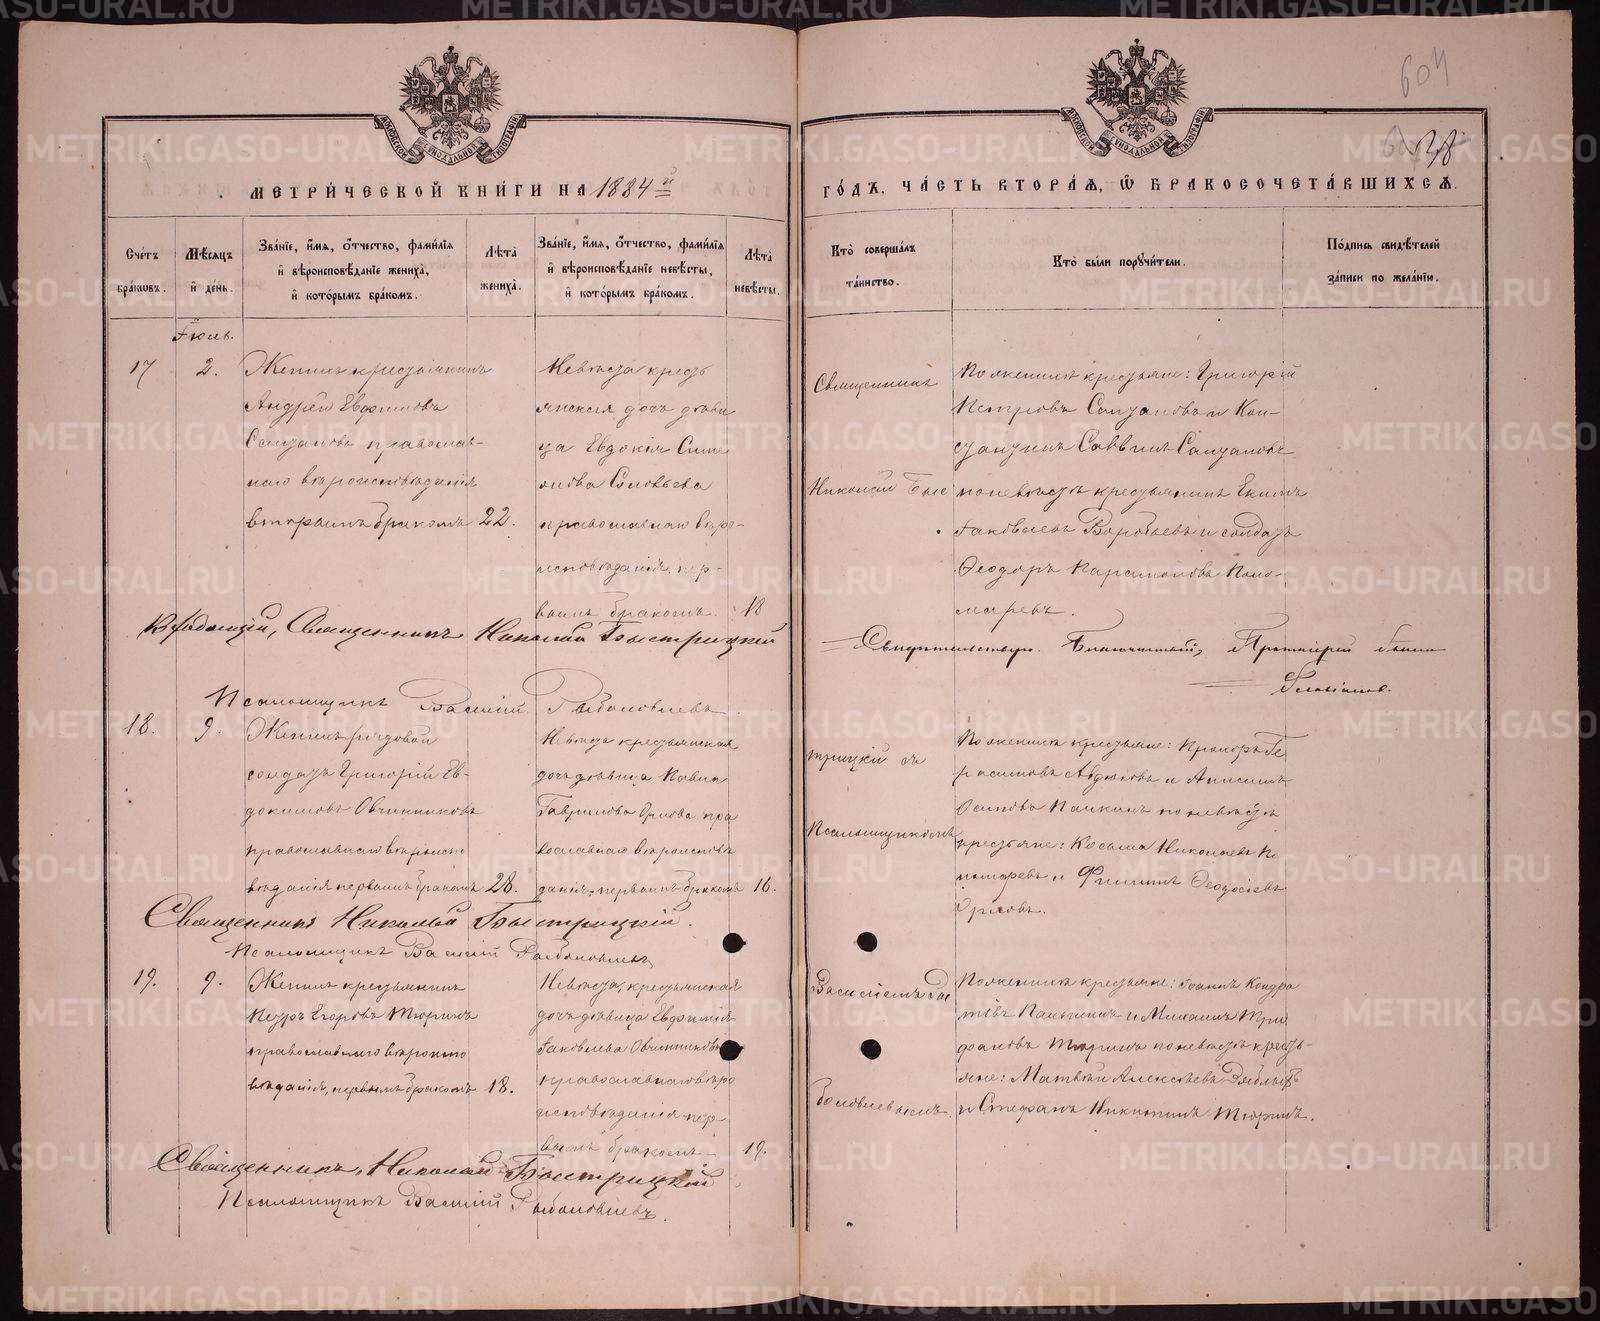 METRIKI.GASO-URAL.RU
604
38
МОСКОВСКОЙ СѴНОДАЛЬНОЙ ТИПОГРАФІИ
МЕТРИ́ЧЕСКОЙ КНИ́ГИ НА 1884й
ГО́ДЪ, ЧА́СТЬ ВТОРА́Ѧ, Ѡ БРАКОСОЧЕТА́ВШИХСѦ.
Сче́тъ бра́ковъ.
Мѣ́сяцъ и де́нь.
Зва́нїе, и́мѧ, о́тчество, фами́лїѧ и вѣроисповѣ́данїе жениха̀, и кото́рымъ бра́комъ.
Лѣта̀ жениха̀.
Зва́нїе, и́мѧ, о́тчество, фами́лїѧ и вѣроисповѣ́данїе невѣ́сты, и кото́рымъ бра́комъ.
Лѣта̀ невѣ́сты.
Кто̀ соверша́лъ та́инство.
Кто̀ бы́ли поручи́тели.
По́дпись свидѣ́телей за́писи по жела́нїю.
Іюль.
17
2.
Женихъ крестьянинъ
Андрей Евфимовъ
Салтановъ православ-
наго вѣроисповѣданія
вторымъ бракомъ
22.
Невѣста кресть
янская дочь дѣви
ца Евдокія Симе
онова Соловьева
православнаго вѣро-
исповѣданія, пер-
вымъ бракомъ.
18
Священникъ
Николай Быс
По женихѣ крестьяне: Григорій
Петровъ Салтановъ и Кон-
стантинъ Саввинъ Салтановъ
по невѣстѣ крестьянинъ Екимъ
Іаковлевъ Воробьевъ и солдатъ
Ѳеодоръ Парамоновъ Поно-
маревъ.
Священникъ Николай Быстрицкій
Свидѣтельствую. Благочинный, Протоіерей
Псаломщикъ Василій Рыболовлевъ
18.
9.
Женихъ рядовой
солдатъ Григорій Ев-
докимовъ Овчинниковъ
православнаго вѣроиспо
вѣданія первымъ бракомъ
28.
Невѣста крестьянская
дочь дѣвица
Гаврилова Орлова пра
вославнаго вѣроисповѣ
данія, первымъ бракомъ
16.
трицкій съ
Псаломщикомъ
По женихѣ крестьяне: Прохоръ Ге
расимовъ Авдюковъ и Анисимъ
Осиповъ Панкинъ по невѣстѣ
крестьяне: Косьма Николаевъ По
номаревъ и Филиппъ Ѳеодосіевъ
Орловъ.
Священникъ Николай Быстрицкій.
Псаломщикъ Василій Рыболовлевъ
19.
9.
Женихъ крестьянинъ
Петръ Егоровъ Тюринъ
православнаго вѣроиспо
вѣданія, первымъ бракомъ
18.
Невѣста, крестьянская
дочь дѣвица Евфимія
Іаковлева Овчинникова
православнаго вѣро
исповѣданія пер
вымъ бракомъ
19.
Василіемъ Ры
боловлевымъ.
По женихѣ крестьяне: Іоаннъ Кондра
тіевъ Паньшинъ и Михаилъ Три
фоновъ Тюринъ по невѣстѣ кресть-
яне: Матвѣй Алексѣевъ
и Стефанъ Никитинъ Тюринъ.
Священникъ, Николай Быстрицкій
Псаломщикъ Василій Рыболовлевъ.